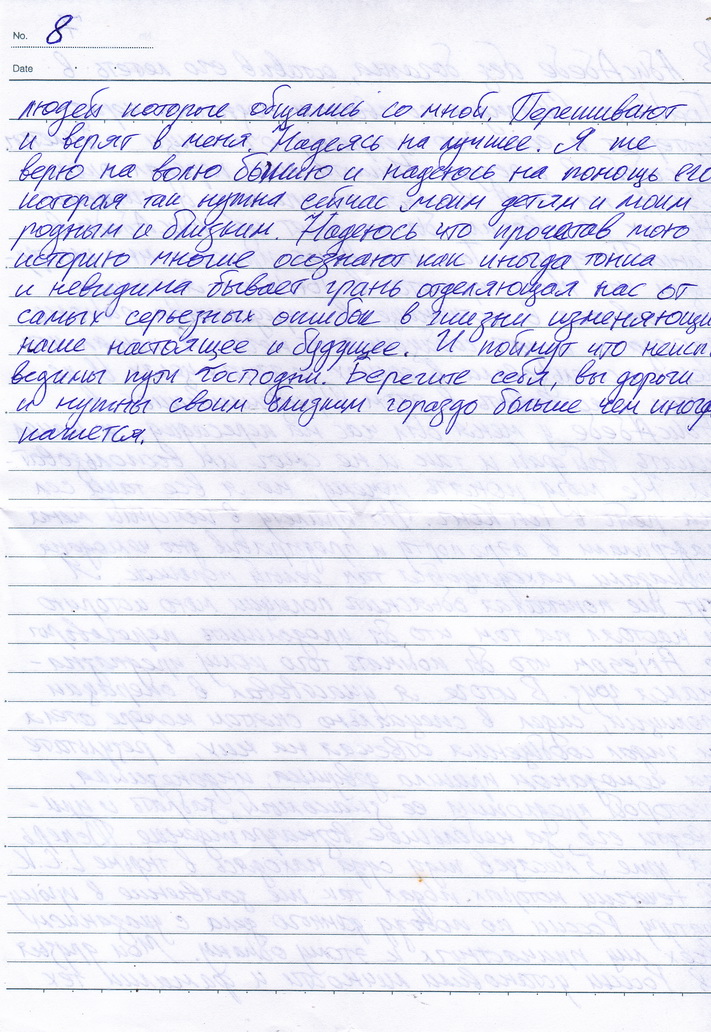 No. 8
Date
людей которые общались со мной. Переживают
и верят в меня. Надеясь на лучшее. Я же
верю на волю божию и надеюсь на помощь его
которая так нужна сейчас моим детям и моим
родным и близким. Надеюсь что прочетав мою
историю многие осознают как иногда тонка
и невидима бывает грань отделяющая нас от
самых серьезных ошибок в жизни изменяющи
наше настоящее и будущее. И поймут что неисп
ведимы пути Господни. Берегите себя, вы дороги
и нужны своим близким гораздо больше чем иногд
кажется.